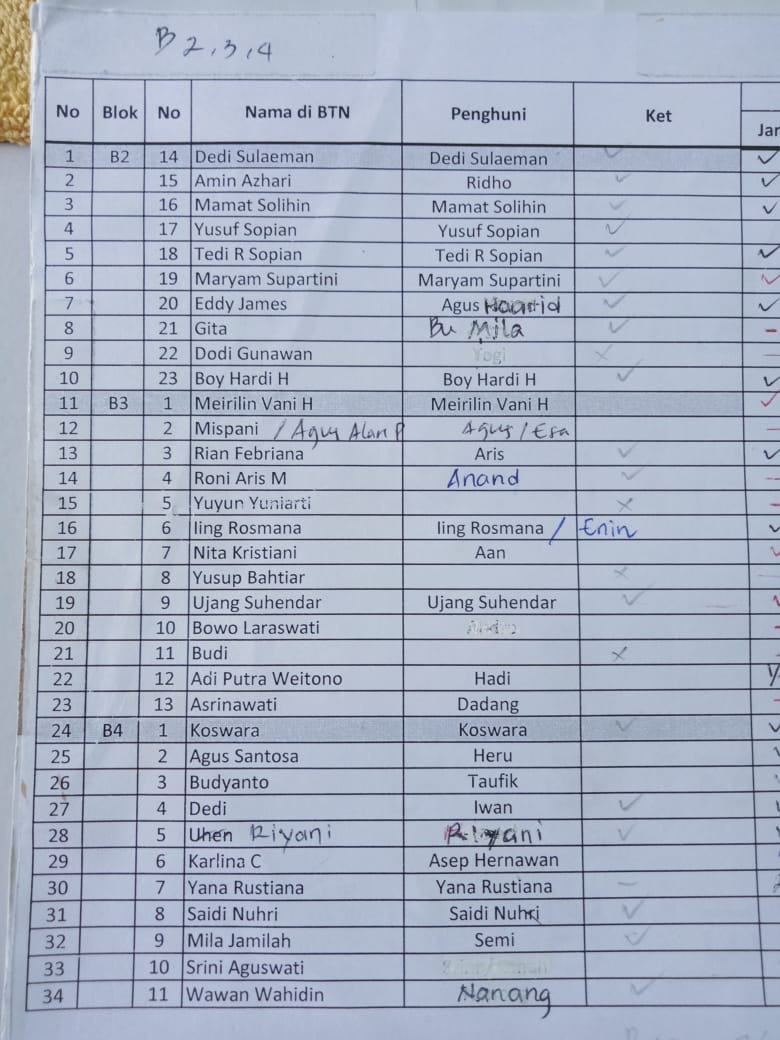 B 2,3,4
No Blok No Nama di BTN Penghuni Ket
Jan
1 B2 14 Dedi Sulaeman Dedi Sulaeman ✓ ✓
2 15 Amin Azhari Ridho ✓ ✓
3 16 Mamat Solihin Mamat Solihin ✓ ✓
4 17 Yusuf Sopian Yusuf Sopian ✓
5 18 Tedi R Sopian Tedi R Sopian ✓ ✓
6 19 Maryam Supartini Maryam Supartini ✓ ✓
7 20 Eddy James Agus ✓ ✓
8 21 Gita Bu Mila ✓ -
9 22 Dodi Gunawan Yogi ×
10 23 Boy Hardi H Boy Hardi H ✓ ✓
11 B3 1 Meirilin Vani H Meirilin Vani H ✓
12 2 Mispani / Agus Alan P Agus / Esa -
13 3 Rian Febriana Aris ✓ ✓
14 4 Roni Aris M Anand ✓ -
15 5 Yuyun Yuniarti × -
16 6 Iing Rosmana Iing Rosmana / Enin ✓
17 7 Nita Kristiani Aan ✓
18 8 Yusup Bahtiar ×
19 9 Ujang Suhendar Ujang Suhendar ✓ ✓
20 10 Bowo Laraswati -
21 11 Budi × -
22 12 Adi Putra Weitono Hadi
23 13 Asrinawati Dadang -
24 B4 1 Koswara Koswara ✓ ✓
25 2 Agus Santosa Heru
26 3 Budyanto Taufik
27 4 Dedi Iwan ✓
28 5 Uhen Riyani Riyani ✓
29 6 Karlina C Asep Hernawan
30 7 Yana Rustiana Yana Rustiana -
31 8 Saidi Nuhri Saidi Nuhri ✓
32 9 Mila Jamilah Semi ✓
33 10 Srini Aguswati
34 11 Wawan Wahidin Nanang ✓